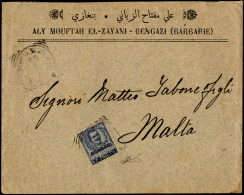 علي مفتاح الزياني - بنغازي
ALY MOUFTAH EL-ZAYANI - BENGAZI (BARBARIE)
Signori Matteo Tabone &
Malta